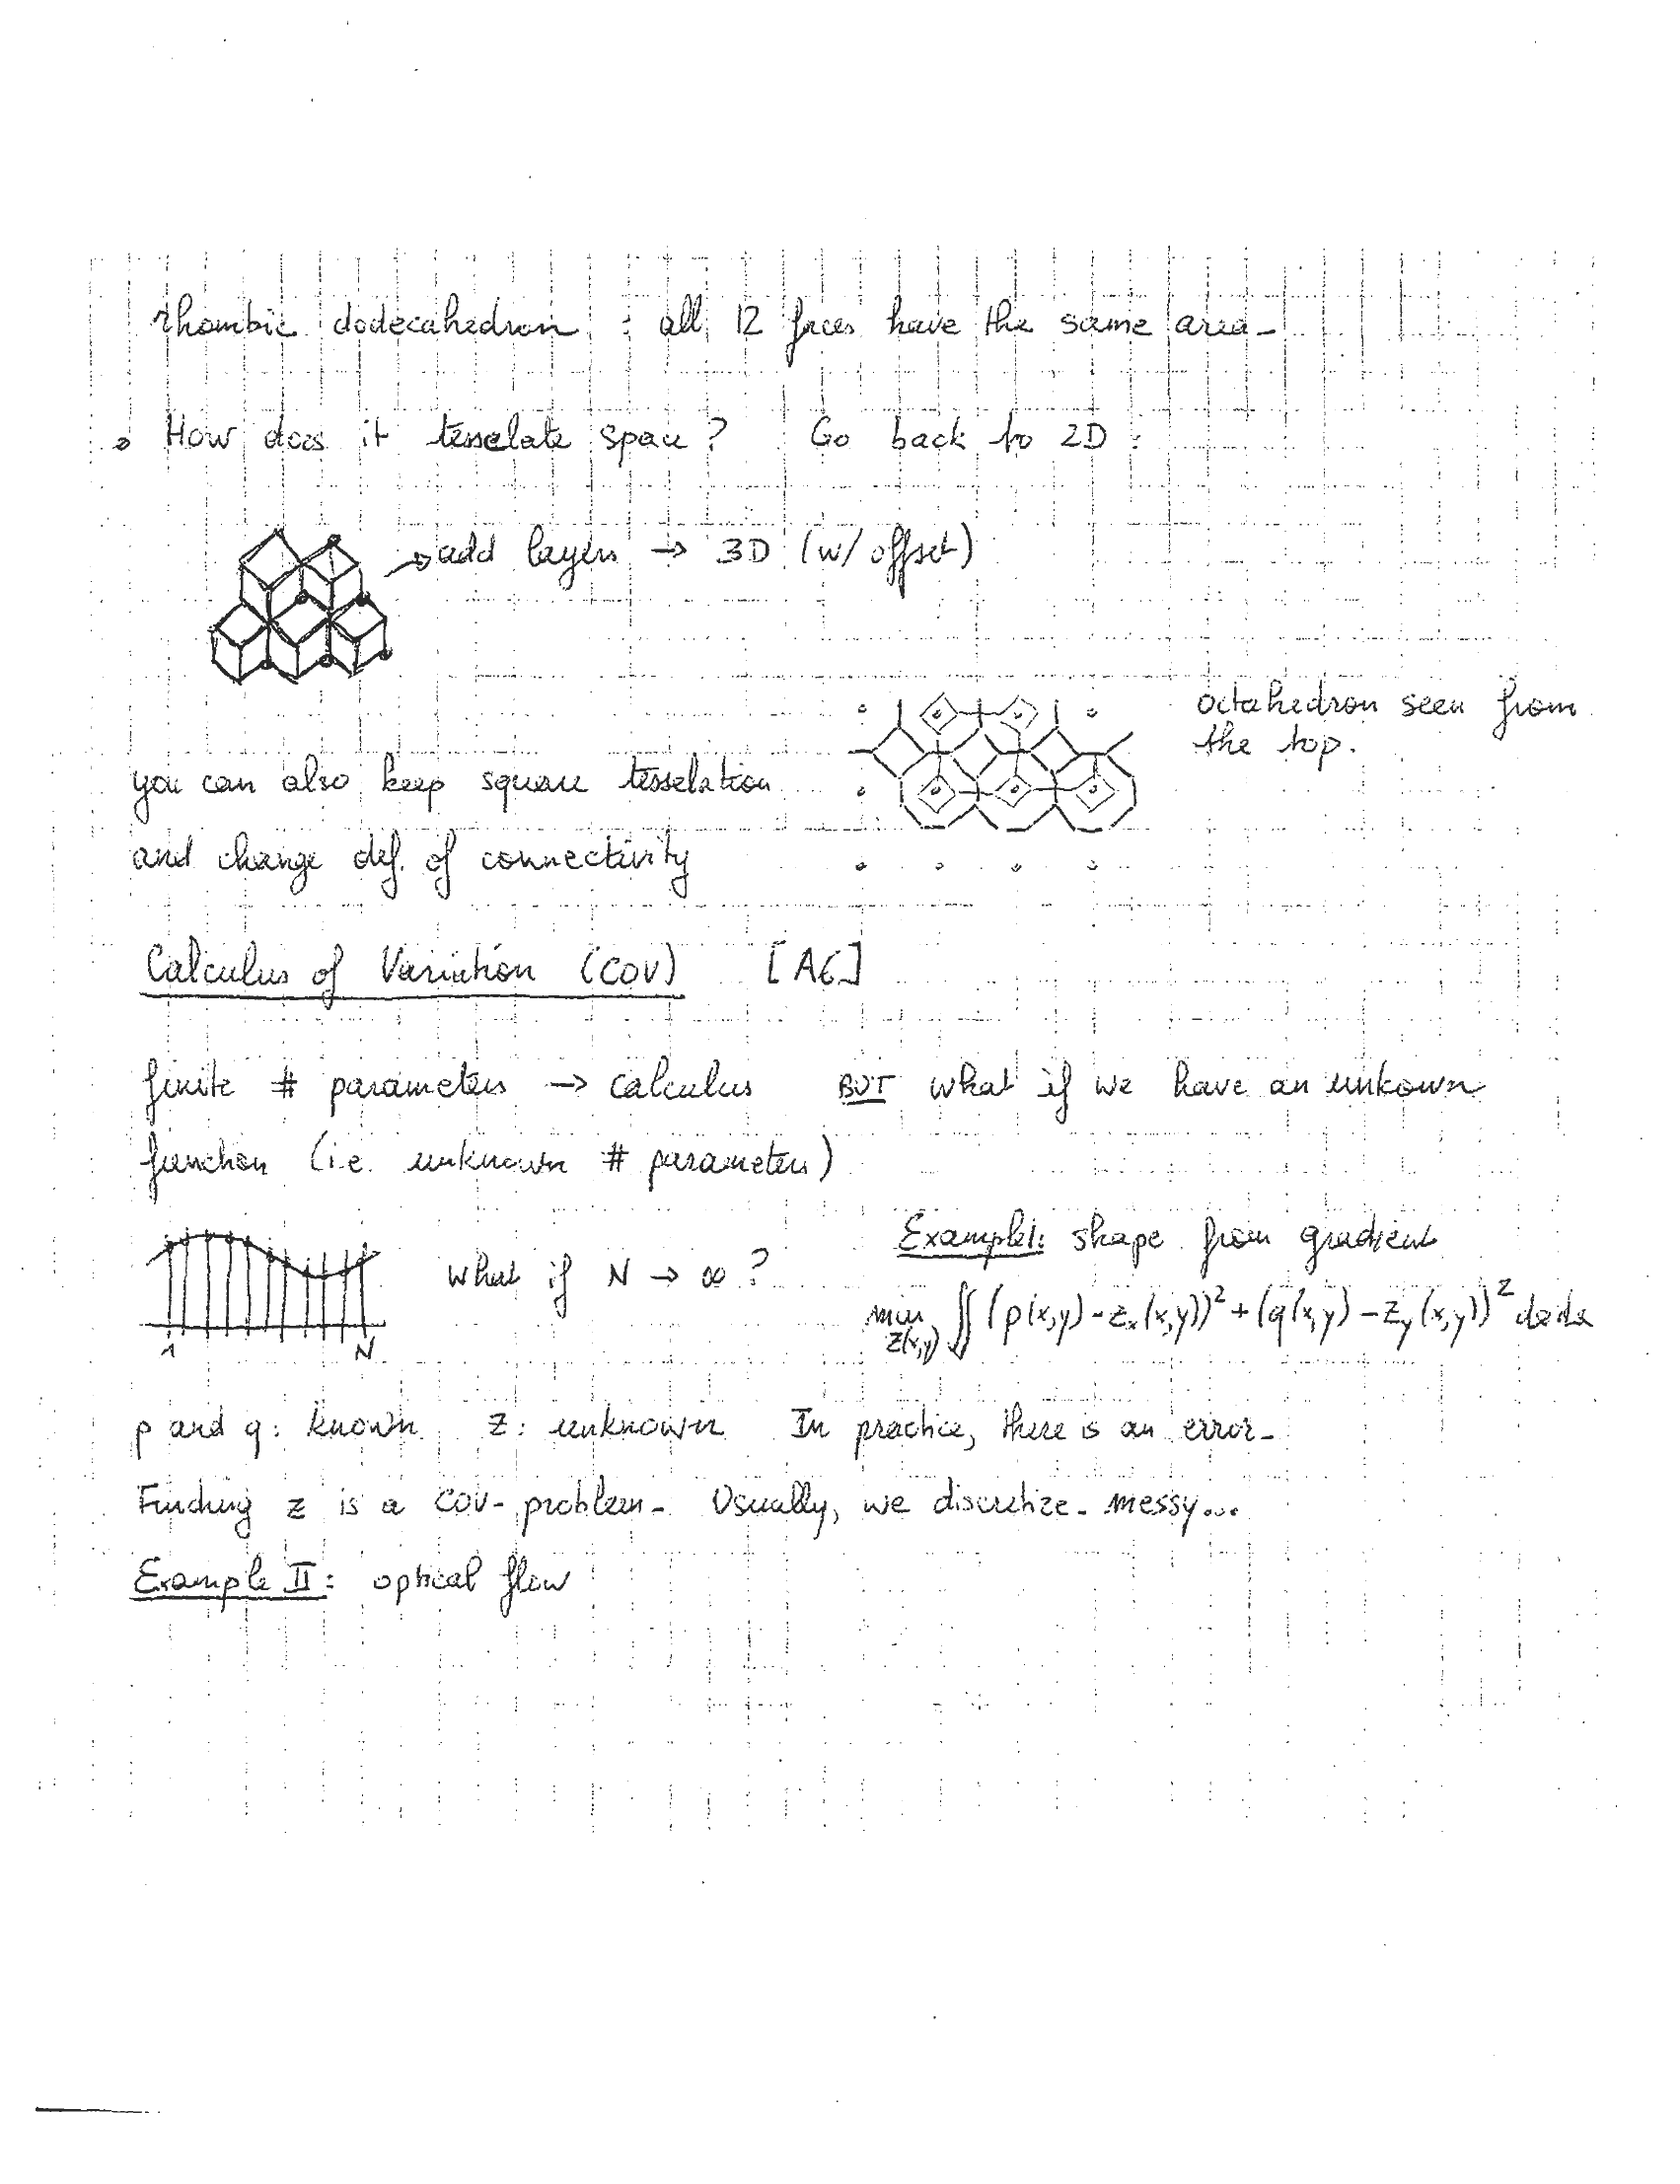 rhombic dodecahedron : all 12 faces have the same area-
How does it tesselate space? Go back to 2D :
add layers → 3D (w/ offset)
octahedron seen from
the top.
you can also keep square tesselation
and change def. of connectivity
Calculus of Variation (COV) [A6]
finite # parameters → calculus BUT what if we have an unkown
function (i.e. unknown # parameters)
Example I: shape from gradient
What if N → ∞ ?
min z(x,y) ∬ (p(x,y) - z_x(x,y))² + (q(x,y) - z_y(x,y))²
1 N
p and q: known z: unknown In practice, there is an error-
Finding z is a COV- problem- Usually, we discretize- messy...
Example II: optical flow